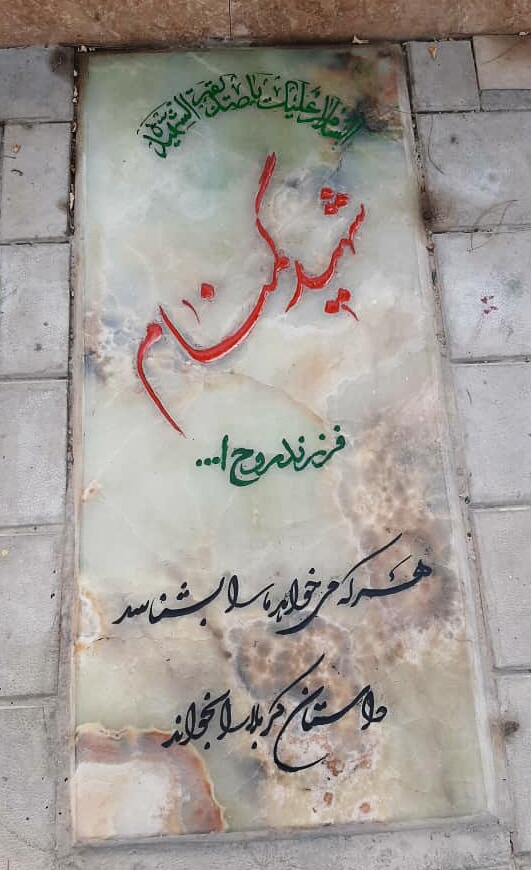 السلام علیک یا صدیقة الشهیدة
شهید گمنام
فرزند روح ا...
هر که می خواهد ما را بشناسد
داستان کربلا را بخواند